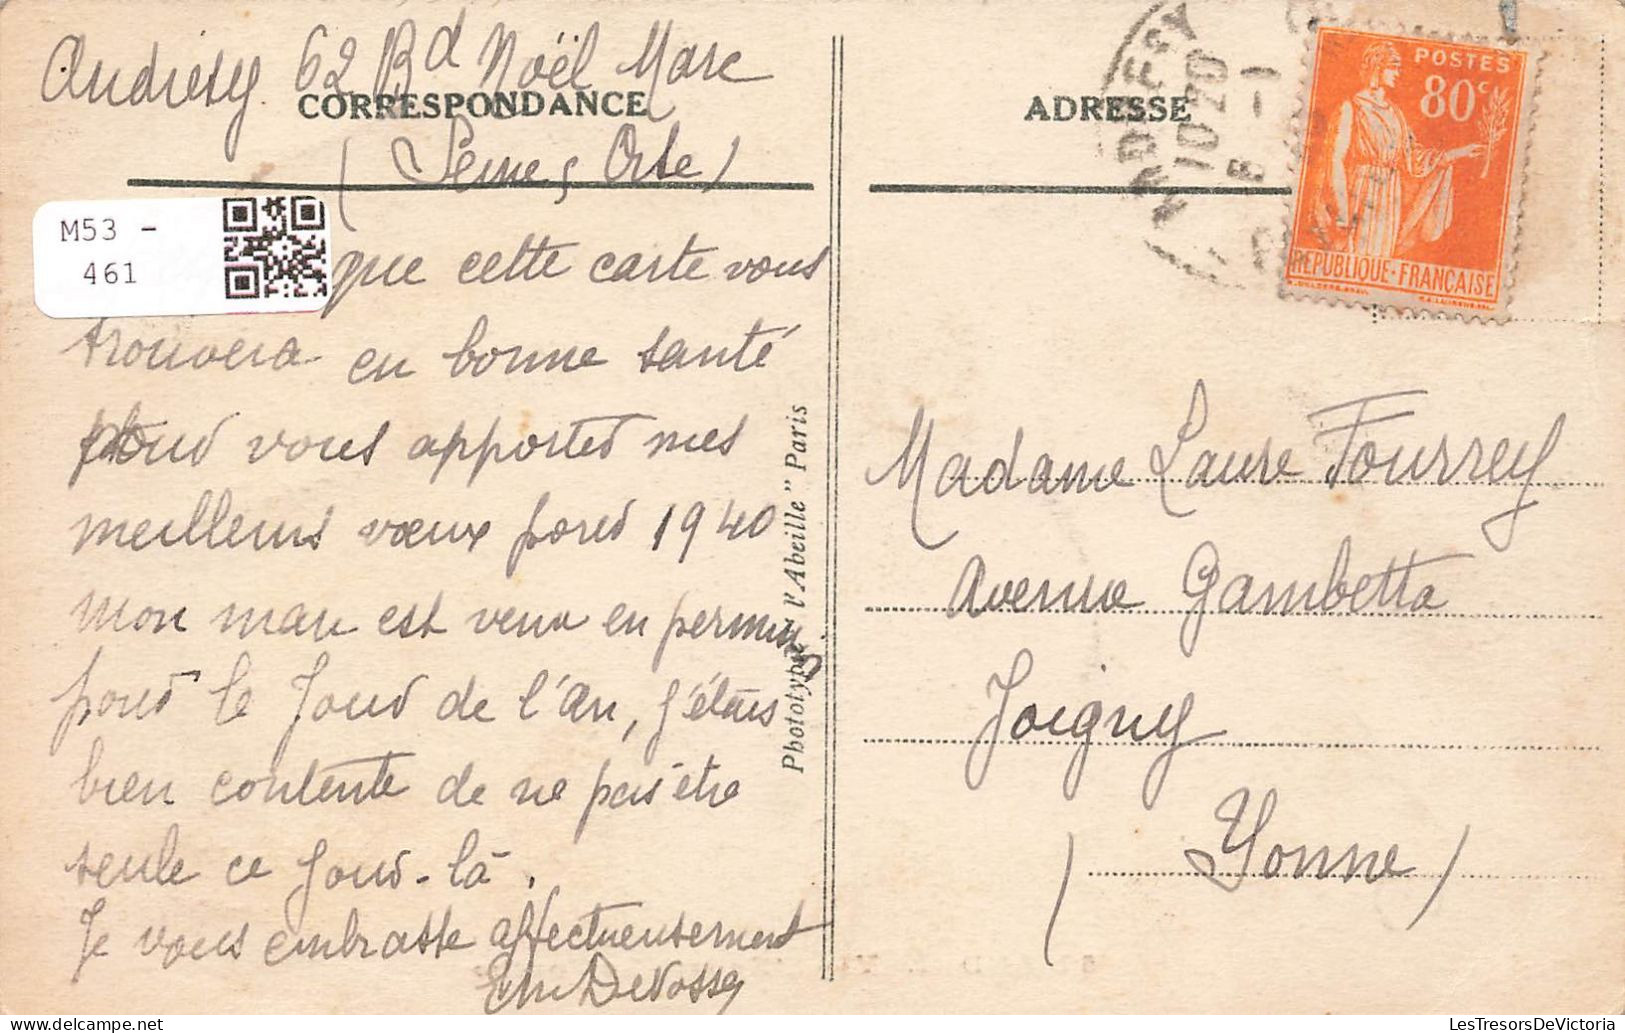 Andrésy 62 Bd Noël Marc
CORRESPONDANCE
(Seine & Oise)
M53 -
461
que cette carte vous
trouvera en bonne santé
pour vous apporter mes
meilleurs vœux pour 1940
mon mari est venu en permis
pour le Jour de l'An, j'étais
bien contente de ne pas être
seule ce jour-là.
Je vous embrasse affectueusement
Phototypie "l'Abeille" Paris
ADRESSE
ANDRESY
10 20
8 - 1
POSTES
80c
REPUBLIQUE-FRANÇAISE
Madame Laure Fourrey
Avenue Gambetta
Joigny
(Yonne)
LesTresorsDeVictoria